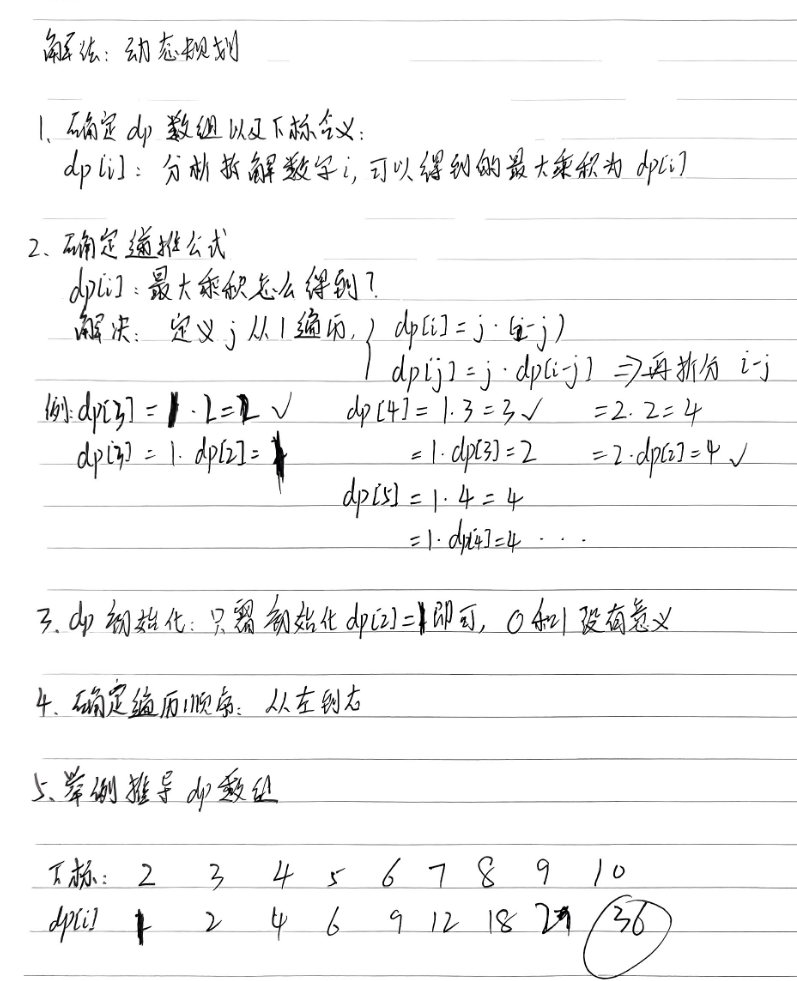 解法：动态规划
1、确定dp数组以及下标含义：
dp[i]：分析拆解数字i，可以得到的最大乘积为dp[i]
2、确定递推公式
dp[i]：最大乘积怎么得到？
解决：定义j从1遍历，{ dp[i] = j·(i-j)
dp[j] = j·dp[i-j] ⇒再拆分 i-j
例：dp[3] = 1·2=2 ✓ dp[4] = 1·3=3 ✓ =2·2=4
dp[3] = 1·dp[2]=1 =1·dp[3]=2 =2·dp[2]=4 ✓
dp[5] = 1·4=4
=1·dp[4]=4 ···
3、dp初始化：只需初始化dp[2]=1即可，0和1没有意义
4、确定遍历顺序：从左到右
5、举例推导dp数组
下标： 2 3 4 5 6 7 8 9 10
dp[i] 1 2 4 6 9 12 18 27 36